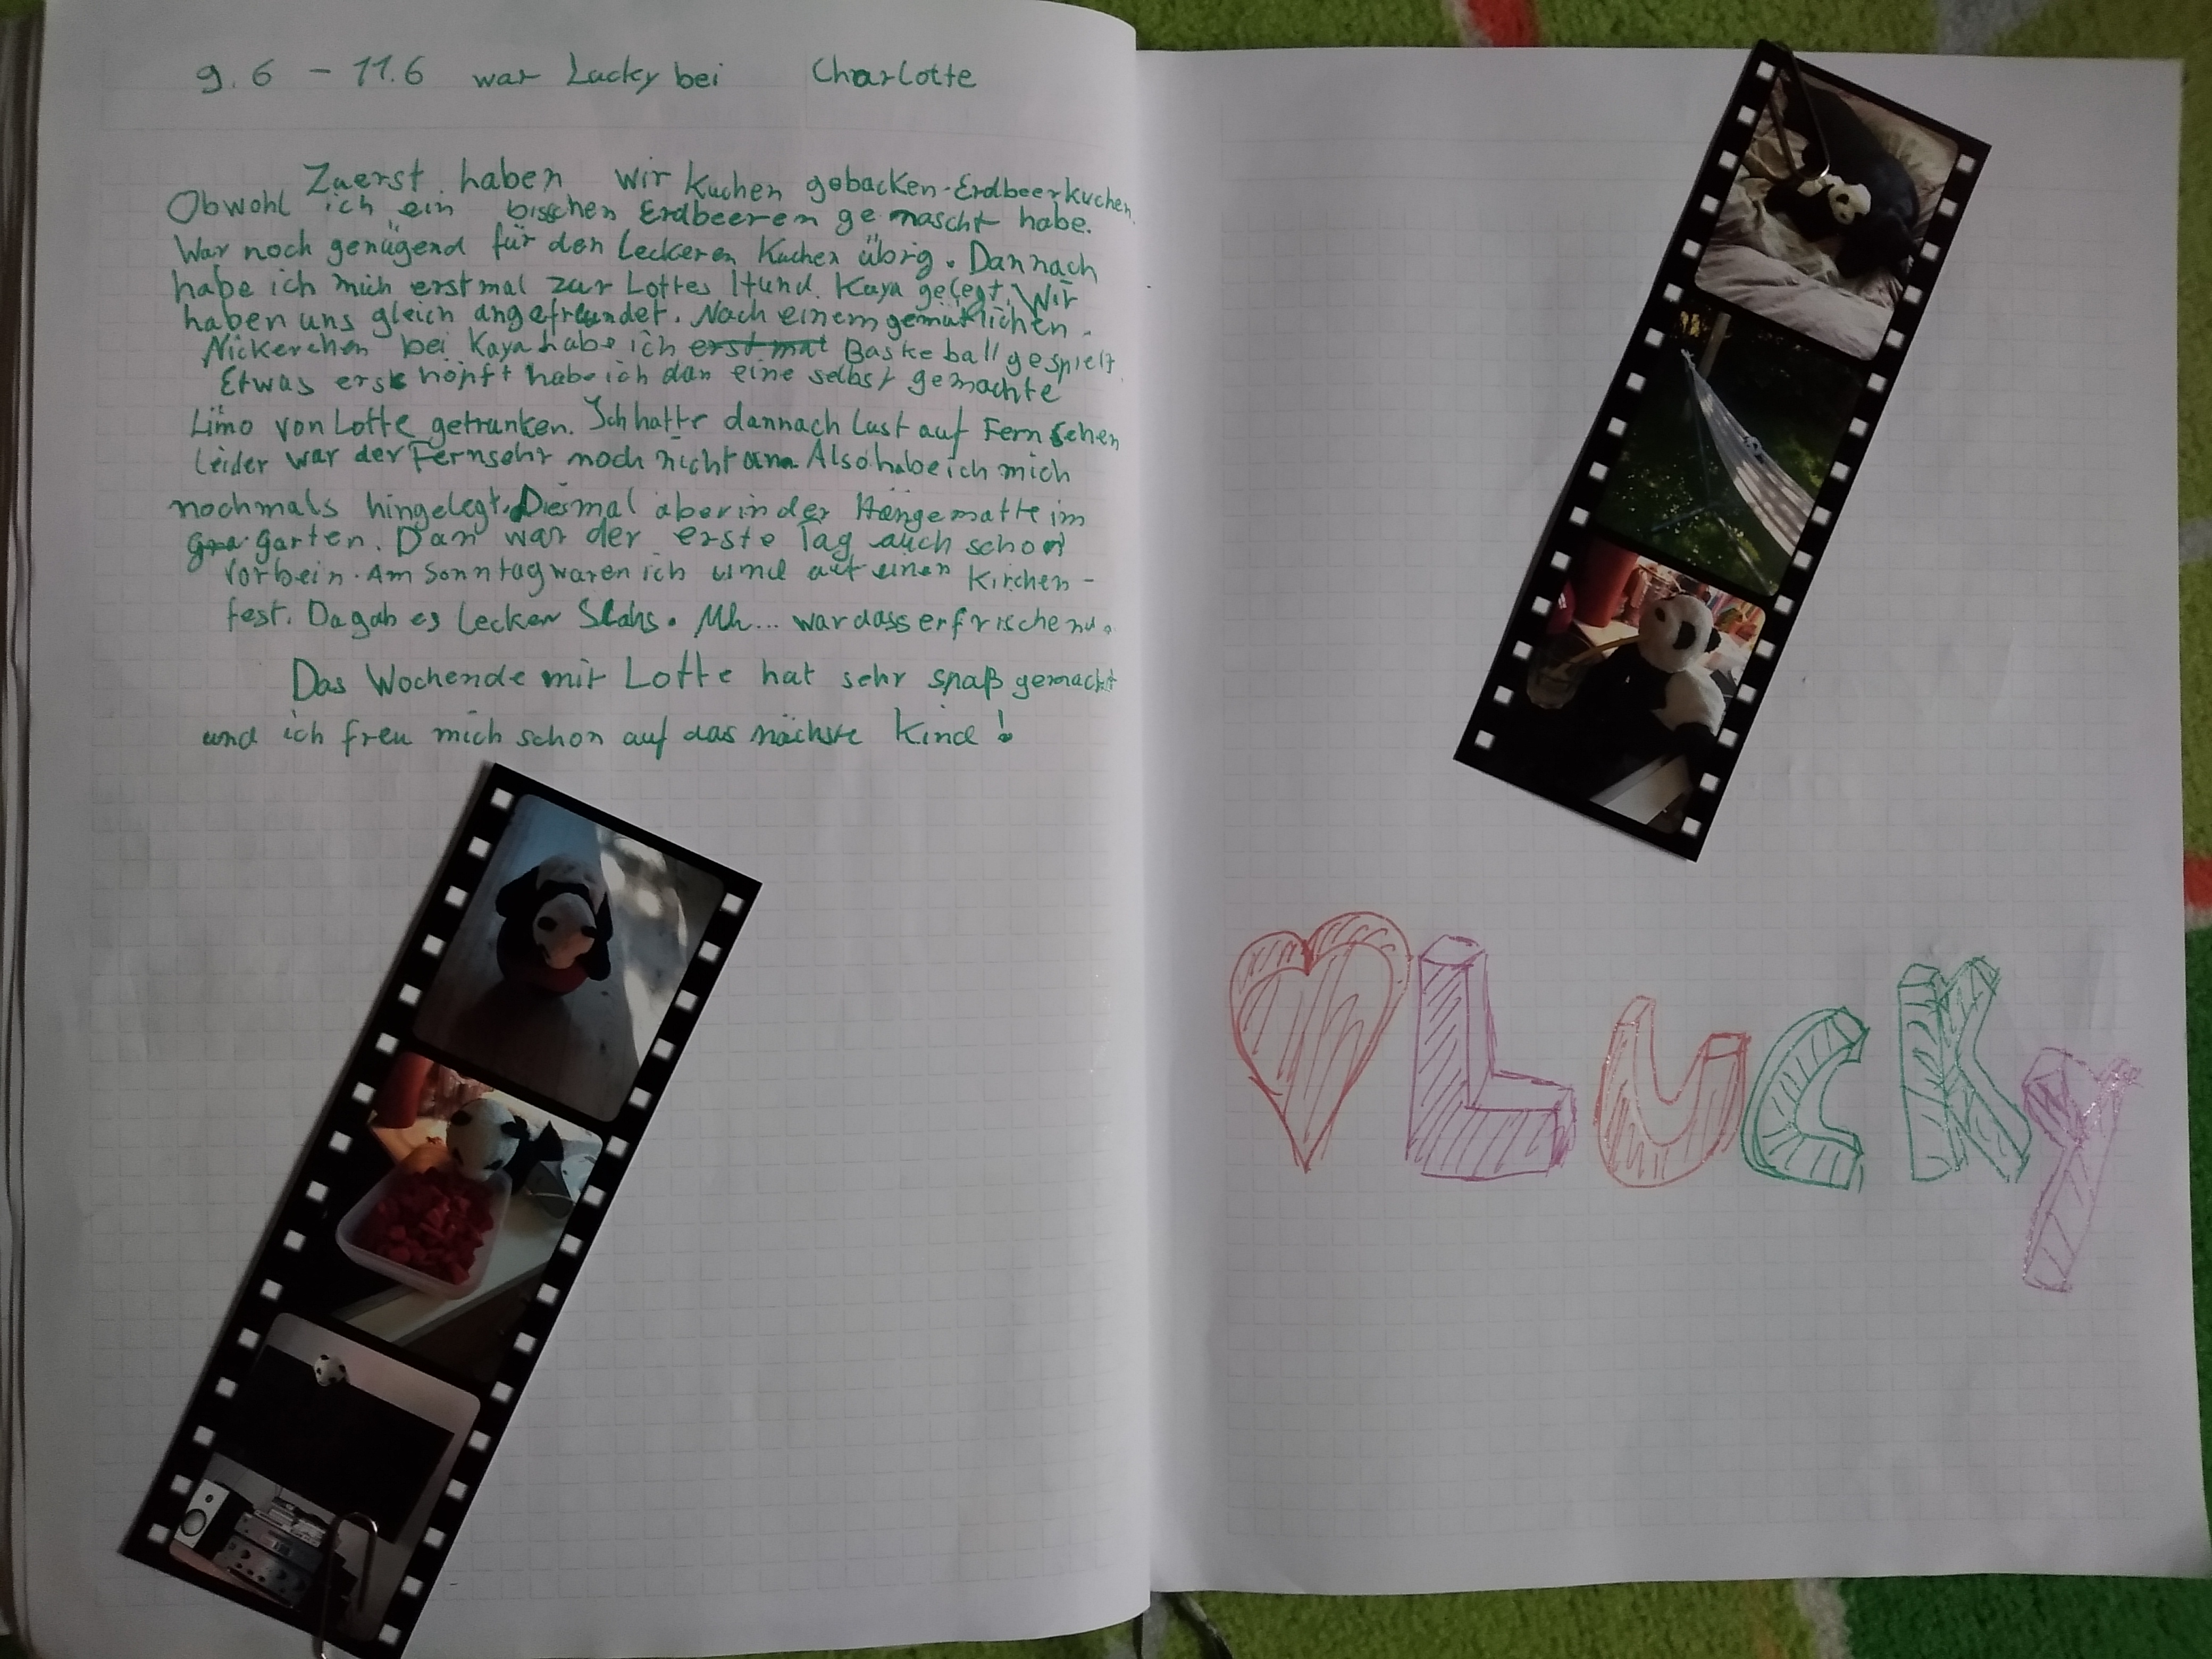 9.6 - 11.6 war Lucky bei Charlotte
Zuerst haben wir Kuchen gebacken-Erdbeerkuchen.
Obwohl ich ein bisschen Erdbeeren genascht habe.
War noch genügend für den Leckeren Kuchen übrig. Dannach
habe ich mich erstmal zur Lottes Hund Kaya gelegt. Wir
haben uns gleich angefreundet. Nach einem gemütlichen
Nickerchen bei Kaya habe ich erst mal Baskeball gespielt.
Etwas erschöpft habe ich dan eine selbst gemachte
Limo von Lotte getrunken. Ich hatte dannach Lust auf Fernsehen
Leider war der Fernsehr noch nicht an. Also habe ich mich
nochmals hingelegt. Diesmal aber in der Hängematte im
garten. Dan war der erste Tag auch schon
vorbein. Am Sonntag waren ich auf einen Kirchen-
fest. Da gab es Lecker Slahs. Mh... war dass erfrischend.
Das Wochende mit Lotte hat sehr spaß gemacht
und ich freu mich schon auf das nächste Kind!
LUCKY